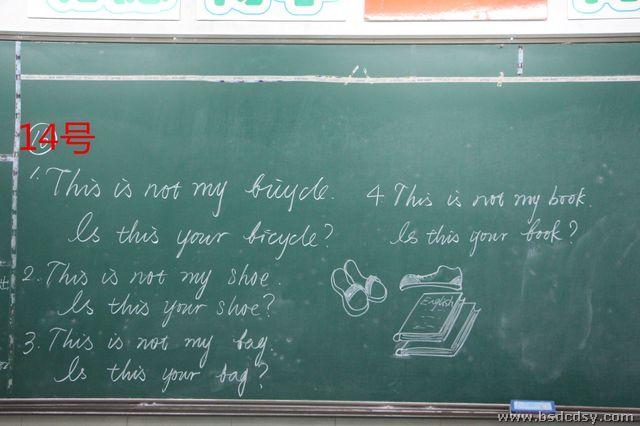 14号
1. This is not my bicycle.
Is this your bicycle?
2. This is not my shoe.
Is this your shoe?
3. This is not my bag.
Is this your bag?
4. This is not my book.
Is this your book?
English
www.bsdcdsy.com